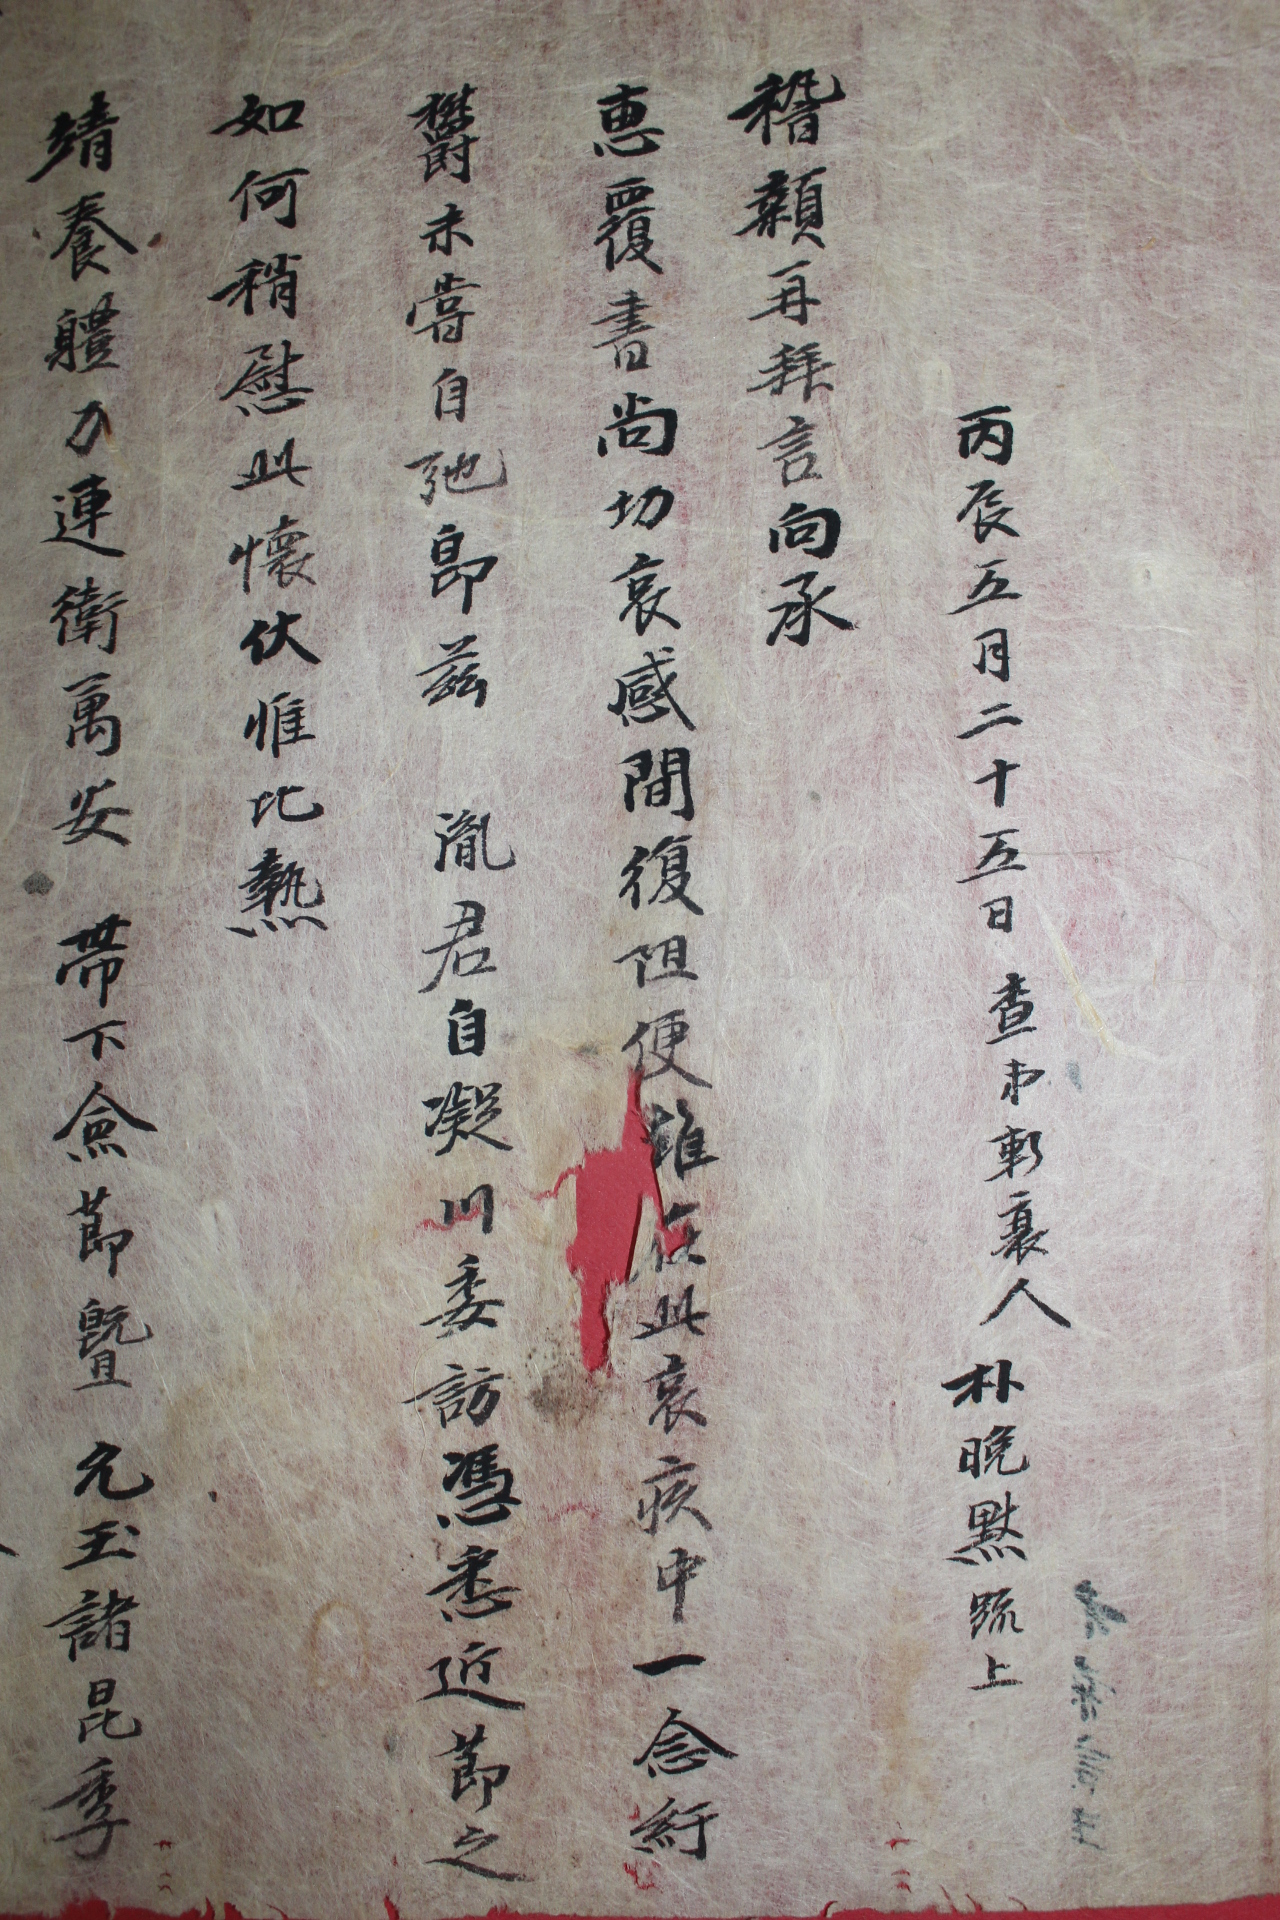 丙辰五月二十五日 査弟斬衰人 朴晩黙 䟽上
稽顙再拜言向承
惠覆書尚切哀感間復阻便雖在此哀疚中一念紆
欝未嘗自弛卽茲 胤君自凝川委訪憑悉近節之
如何稍慰此懷伏惟比熱
靖養體力連衛萬安 帶下僉節曁 允玉諸昆季